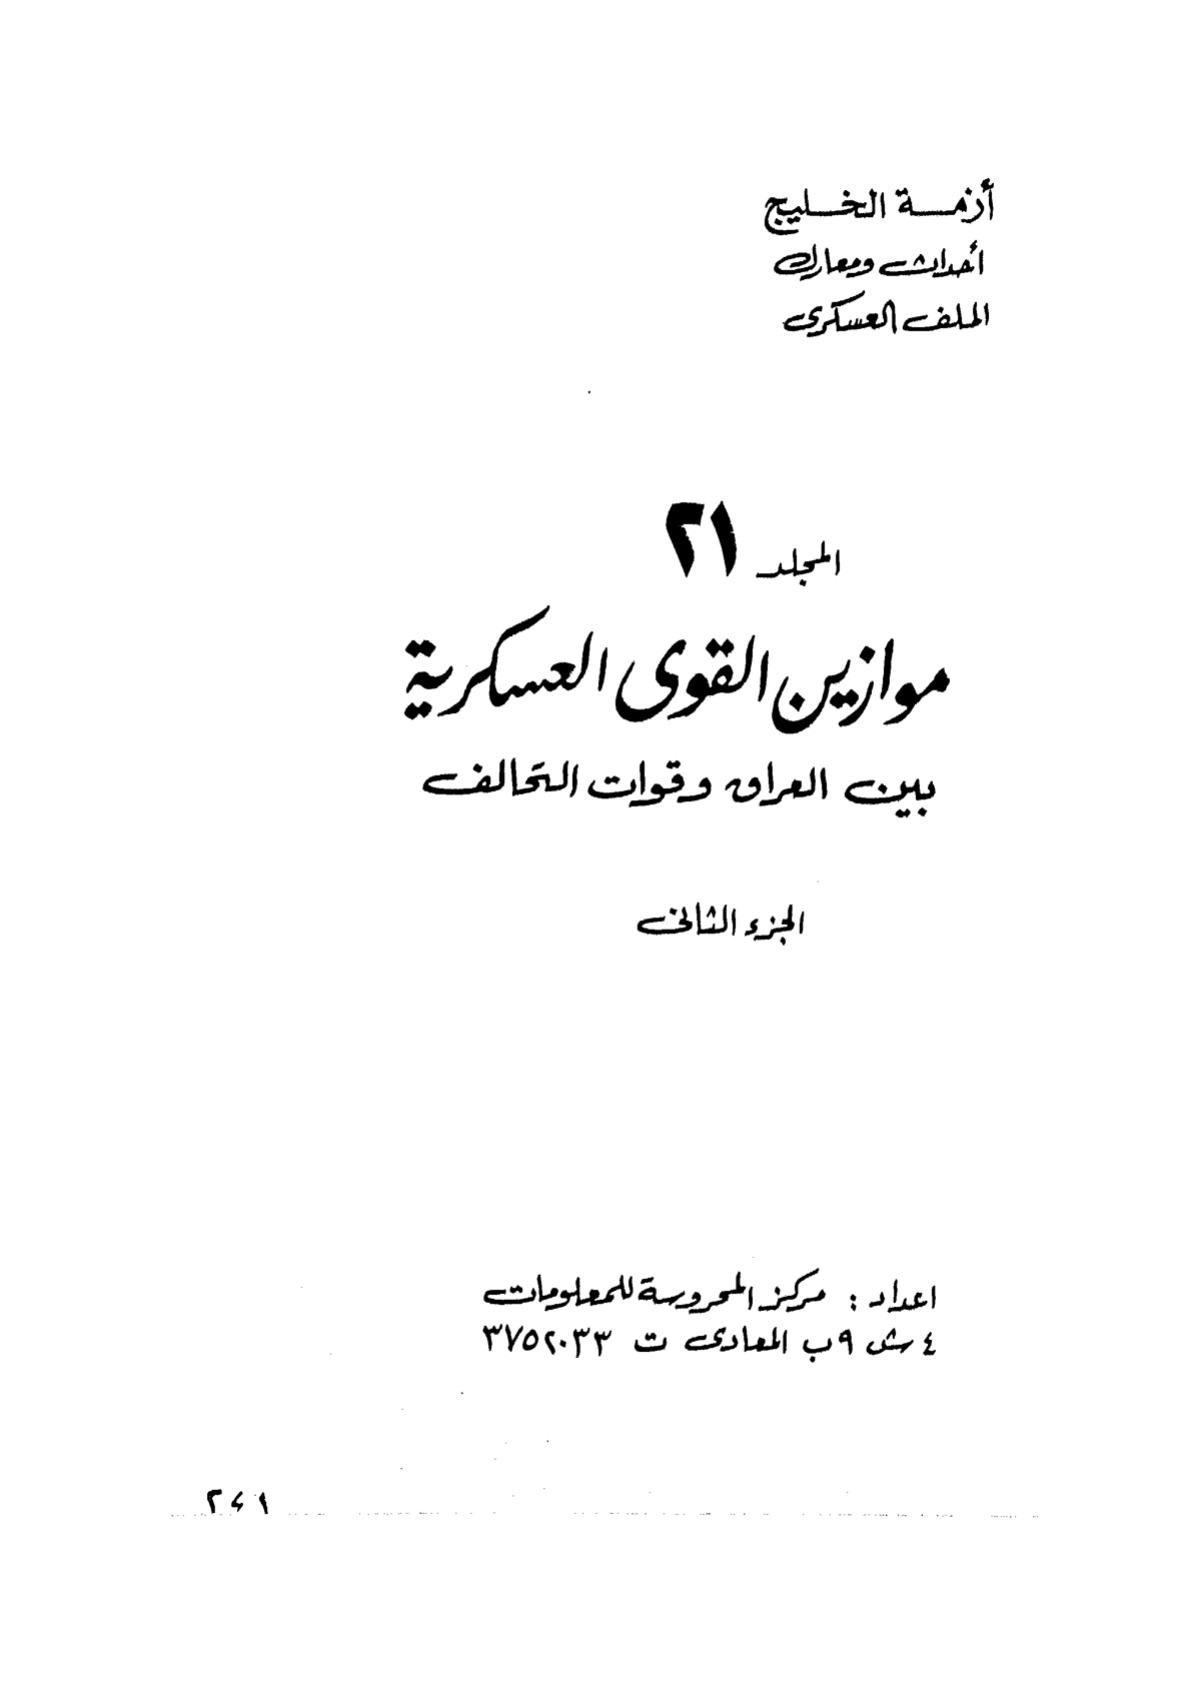 أزمة الخليج
أحداث ومعارك
الملف العسكرى
المجلد ٢١
موازين القوى العسكرية
بين العراق وقوات التحالف
الجزء الثانى
اعداد : مركز المحروسة للمعلومات
٤ ش ٩ب المعادى ت ٣٧٥٢٠٣٣